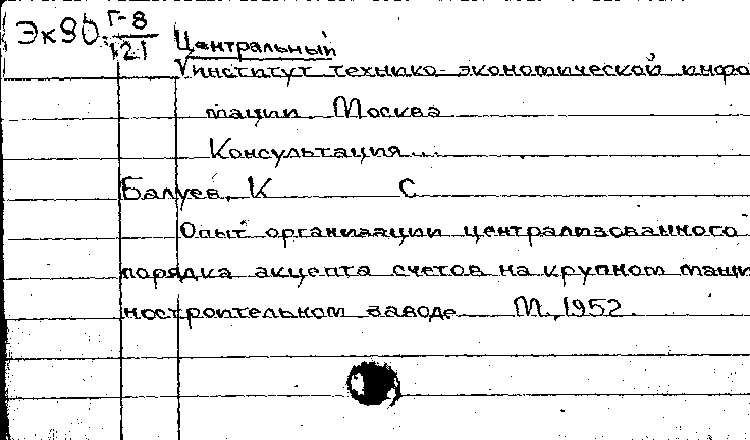 Эк90 Г-8
121
Центральный
институт технико-экономической инфор
мации. Москва
Консультация...
Балуев, К С
Опыт организации централизованного
порядка акцепта счетов на крупном маши
ностроительном заводе М., 1952.